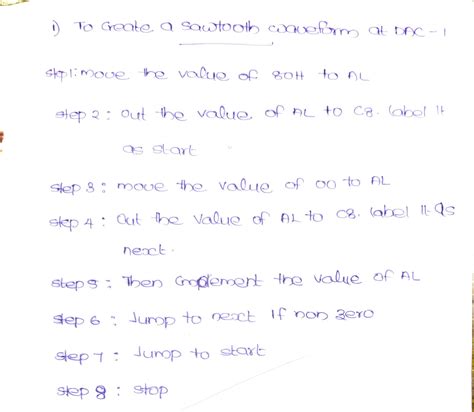 i) To Create a sawtooth waveform at DAC - 1
step1: move the value of 80H to AL
step 2 : out the value of AL to C8. label it
as start
step 3 : move the value of 00 to AL
step 4 : Out the value of AL to C8. label it. as
next.
step 5 : Then Complement the value of AL
step 6 : Jump to next if non zero
step 7 : Jump to start
step 8 : stop